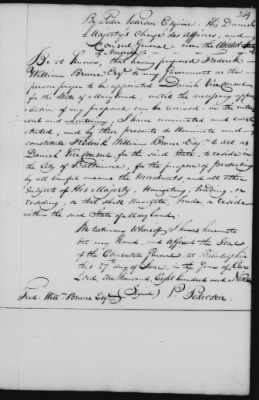 By Peder Pedersen Esquire, His Danish
Majesty's Charge des affaires, and
Consul General over the United States
of America
Be it known, that having proposed Frederick
William Brune Esqr. to my Government as the
person proper to be appointed Danish Viceconsul
for the State of Maryland, until the
of my propose can be received, in the
and I have nominated and
and by these presents do Nominate and
constitute Fredrick William Brune Esqr. to act as
Danish Viceconsul for the said State, to reside in
the City of for the purpose of protecting
by all lawful means the Merchants and all other
Subjects of His Majesty, Navigating, trading, or
residing, or that shall Navigate, trade or reside
within the said State of Maryland.
In testimony Whereof, I have hereunto
set my Hand, and affixed the Seal
of the Consulate General, at Philadelphia
this 27 day of June, in the Year of Our
Lord, One thousand, Eight hundred and
Fred. Willm. Brune Esqr. (Signed) P. Pedersen.